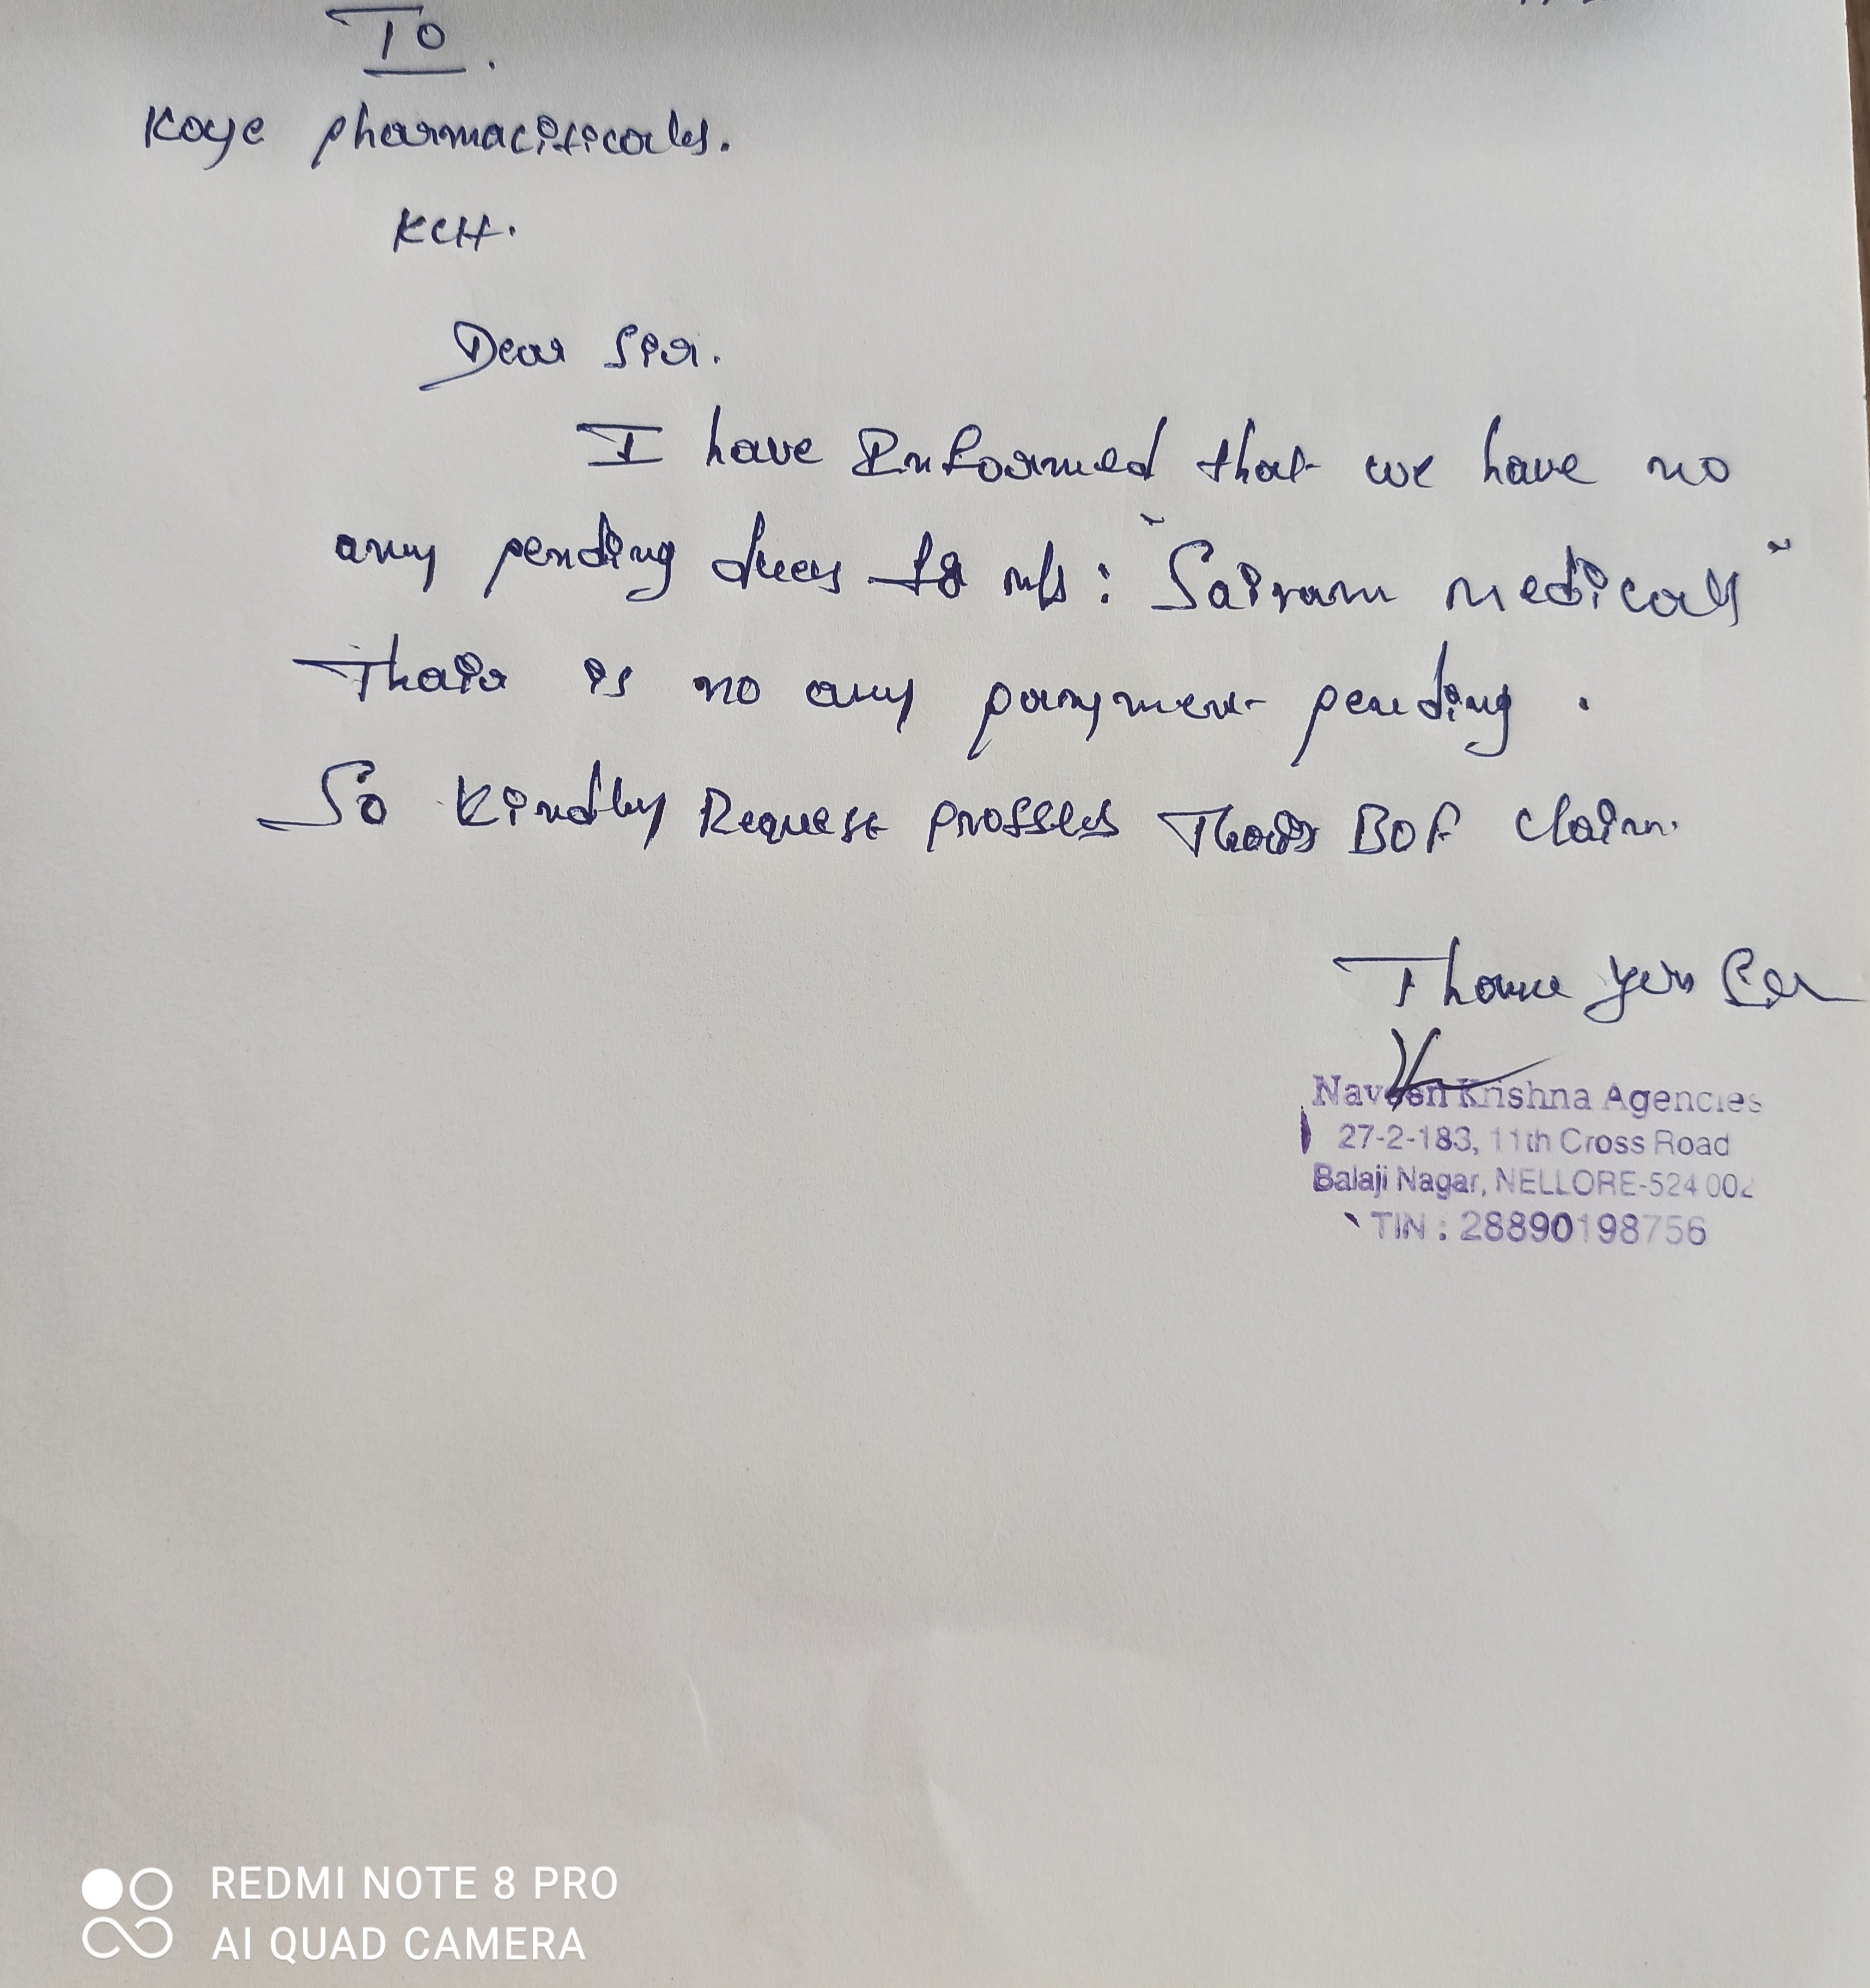 To.
Koye pharmacificals.
KCH.
Dear Sir.
I have Informed that we have no
any pending dues to M/s: "Sairam medicals"
Thair is no any payment pending.
So Kindly Request prosses Thair BOF claim.
Thank you Sir
Naveen Krishna Agencies
27-2-183, 11th Cross Road
Balaji Nagar, NELLORE-524 002
TIN : 28890198756
REDMI NOTE 8 PRO
AI QUAD CAMERA